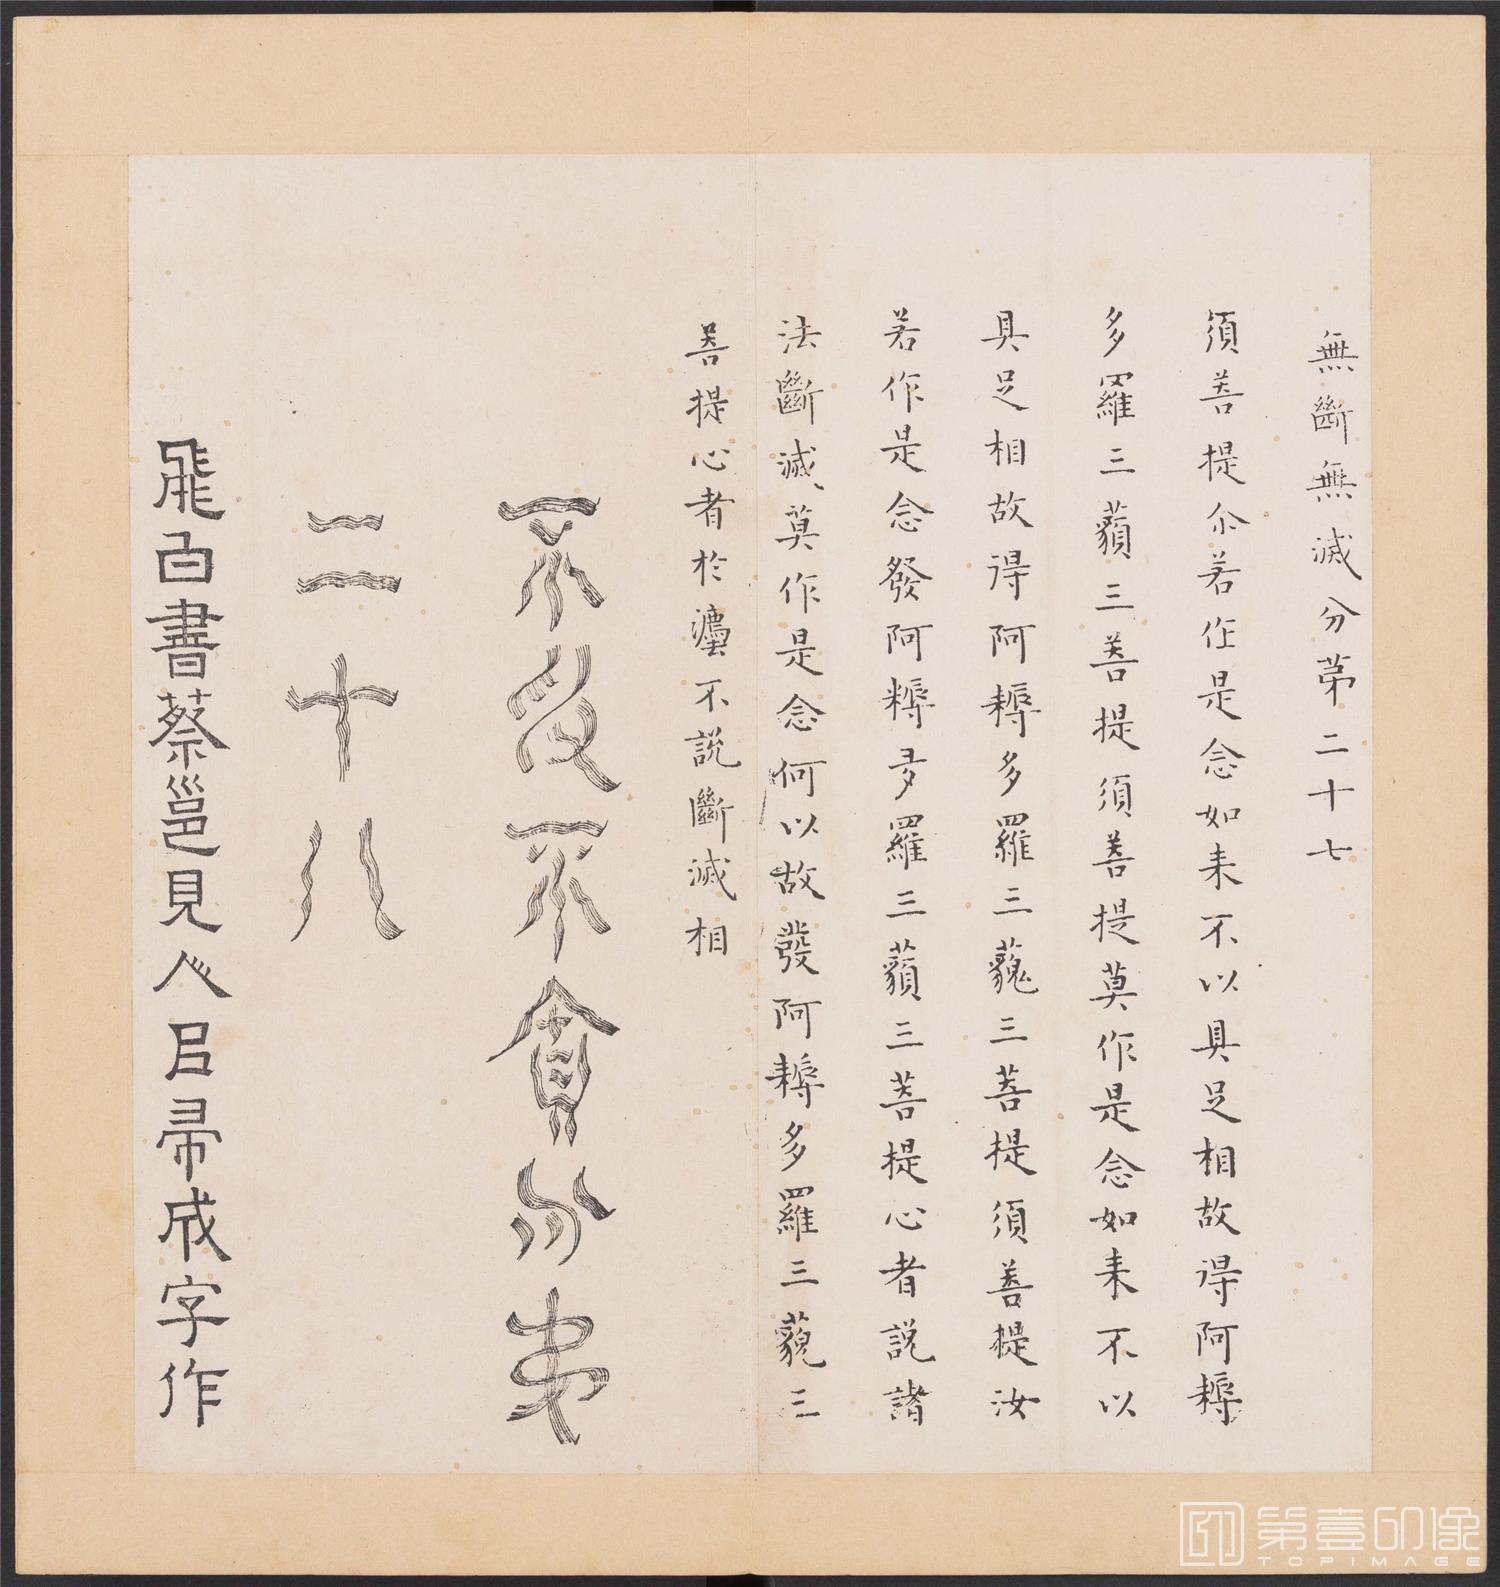 無斷無滅分第二十七
須菩提尒若作是念如来不以具足相故得阿耨
多羅三藐三菩提須菩提莫作是念如来不以
具足相故得阿耨多羅三藐三菩提須菩提汝
若作是念發阿耨多羅三藐三菩提心者說諸
法斷滅莫作是念何以故發阿耨多羅三藐三
菩提心者於灋不說斷滅相
不受不貪分弟
二十八
飛白書蔡邕見人㠯帚成字作
第壹印像
TOPIMAGE